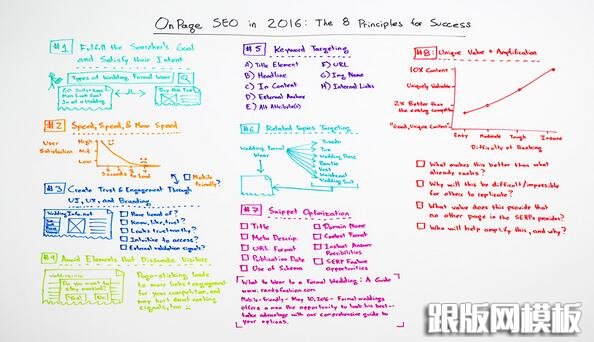 OnPage SEO in 2016: The 8 Principles for Success
#1 Fulfill the Searcher's Goal
and Satisfy their Intent
Types of Wedding Formal Wear
20 Interesting
Men Lost Suit
In at a Wedding
Buy this Tux!
#2 Speed, Speed, & More Speed
User
Satisfaction
High
Med
Low
Seconds to Load
Mobile
Friendly?
#3 Create Trust & Engagement Through
UI, UX, and Branding
WeddingInfo.net
Ever heard of?
Know, like, trust?
Looks trustworthy?
Intuitive to access?
External validation signals?
#4 Avoid Elements that Dissuade Visitors
Do you want to
stay married?
Yes!
No!
Pogo-sticking leads
to more links & engagement
for your competition, and
may hurt direct ranking
signals, too
#5 Keyword Targeting
A) Title Element
B) Headline
C) In Content
D) External Anchor
E) Alt Attribute(s)
F) URL
G) Img Name
H) Internal Links
#6 Related Topics Targeting
Wedding Formal
Wear
Tuxedo
Tie
Wedding Dress
Bowtie
Vest
Waistcoat
Wedding Suit
#7 Snippet Optimization
Title
Meta Descrip.
URL Format
Publication Date
Use of Schema
Domain Name
Content Format
Instant Answer
Possibilities
SERP Feature
Opportunities
What to Wear to a Formal Wedding: A Guide
www.randsfashion.com
Mobile-friendly - May 10, 2016 - Formal weddings
offer a man the opportunity to look his best -
take advantage with our comprehensive guide to
your options.
#8: Unique Value + Amplification
10X Content
Uniquely Valuable
2X Better than
the existing competitors
"Good, Unique Content"
Easy
Moderate
Tough
Insane
Difficulty of Ranking
What makes this better than what
already ranks?
Why will this be difficult/impossible
for others to replicate?
What value does this provide that
no other page in the SERPs provides?
Who will help amplify this, and why?
跟版网模板